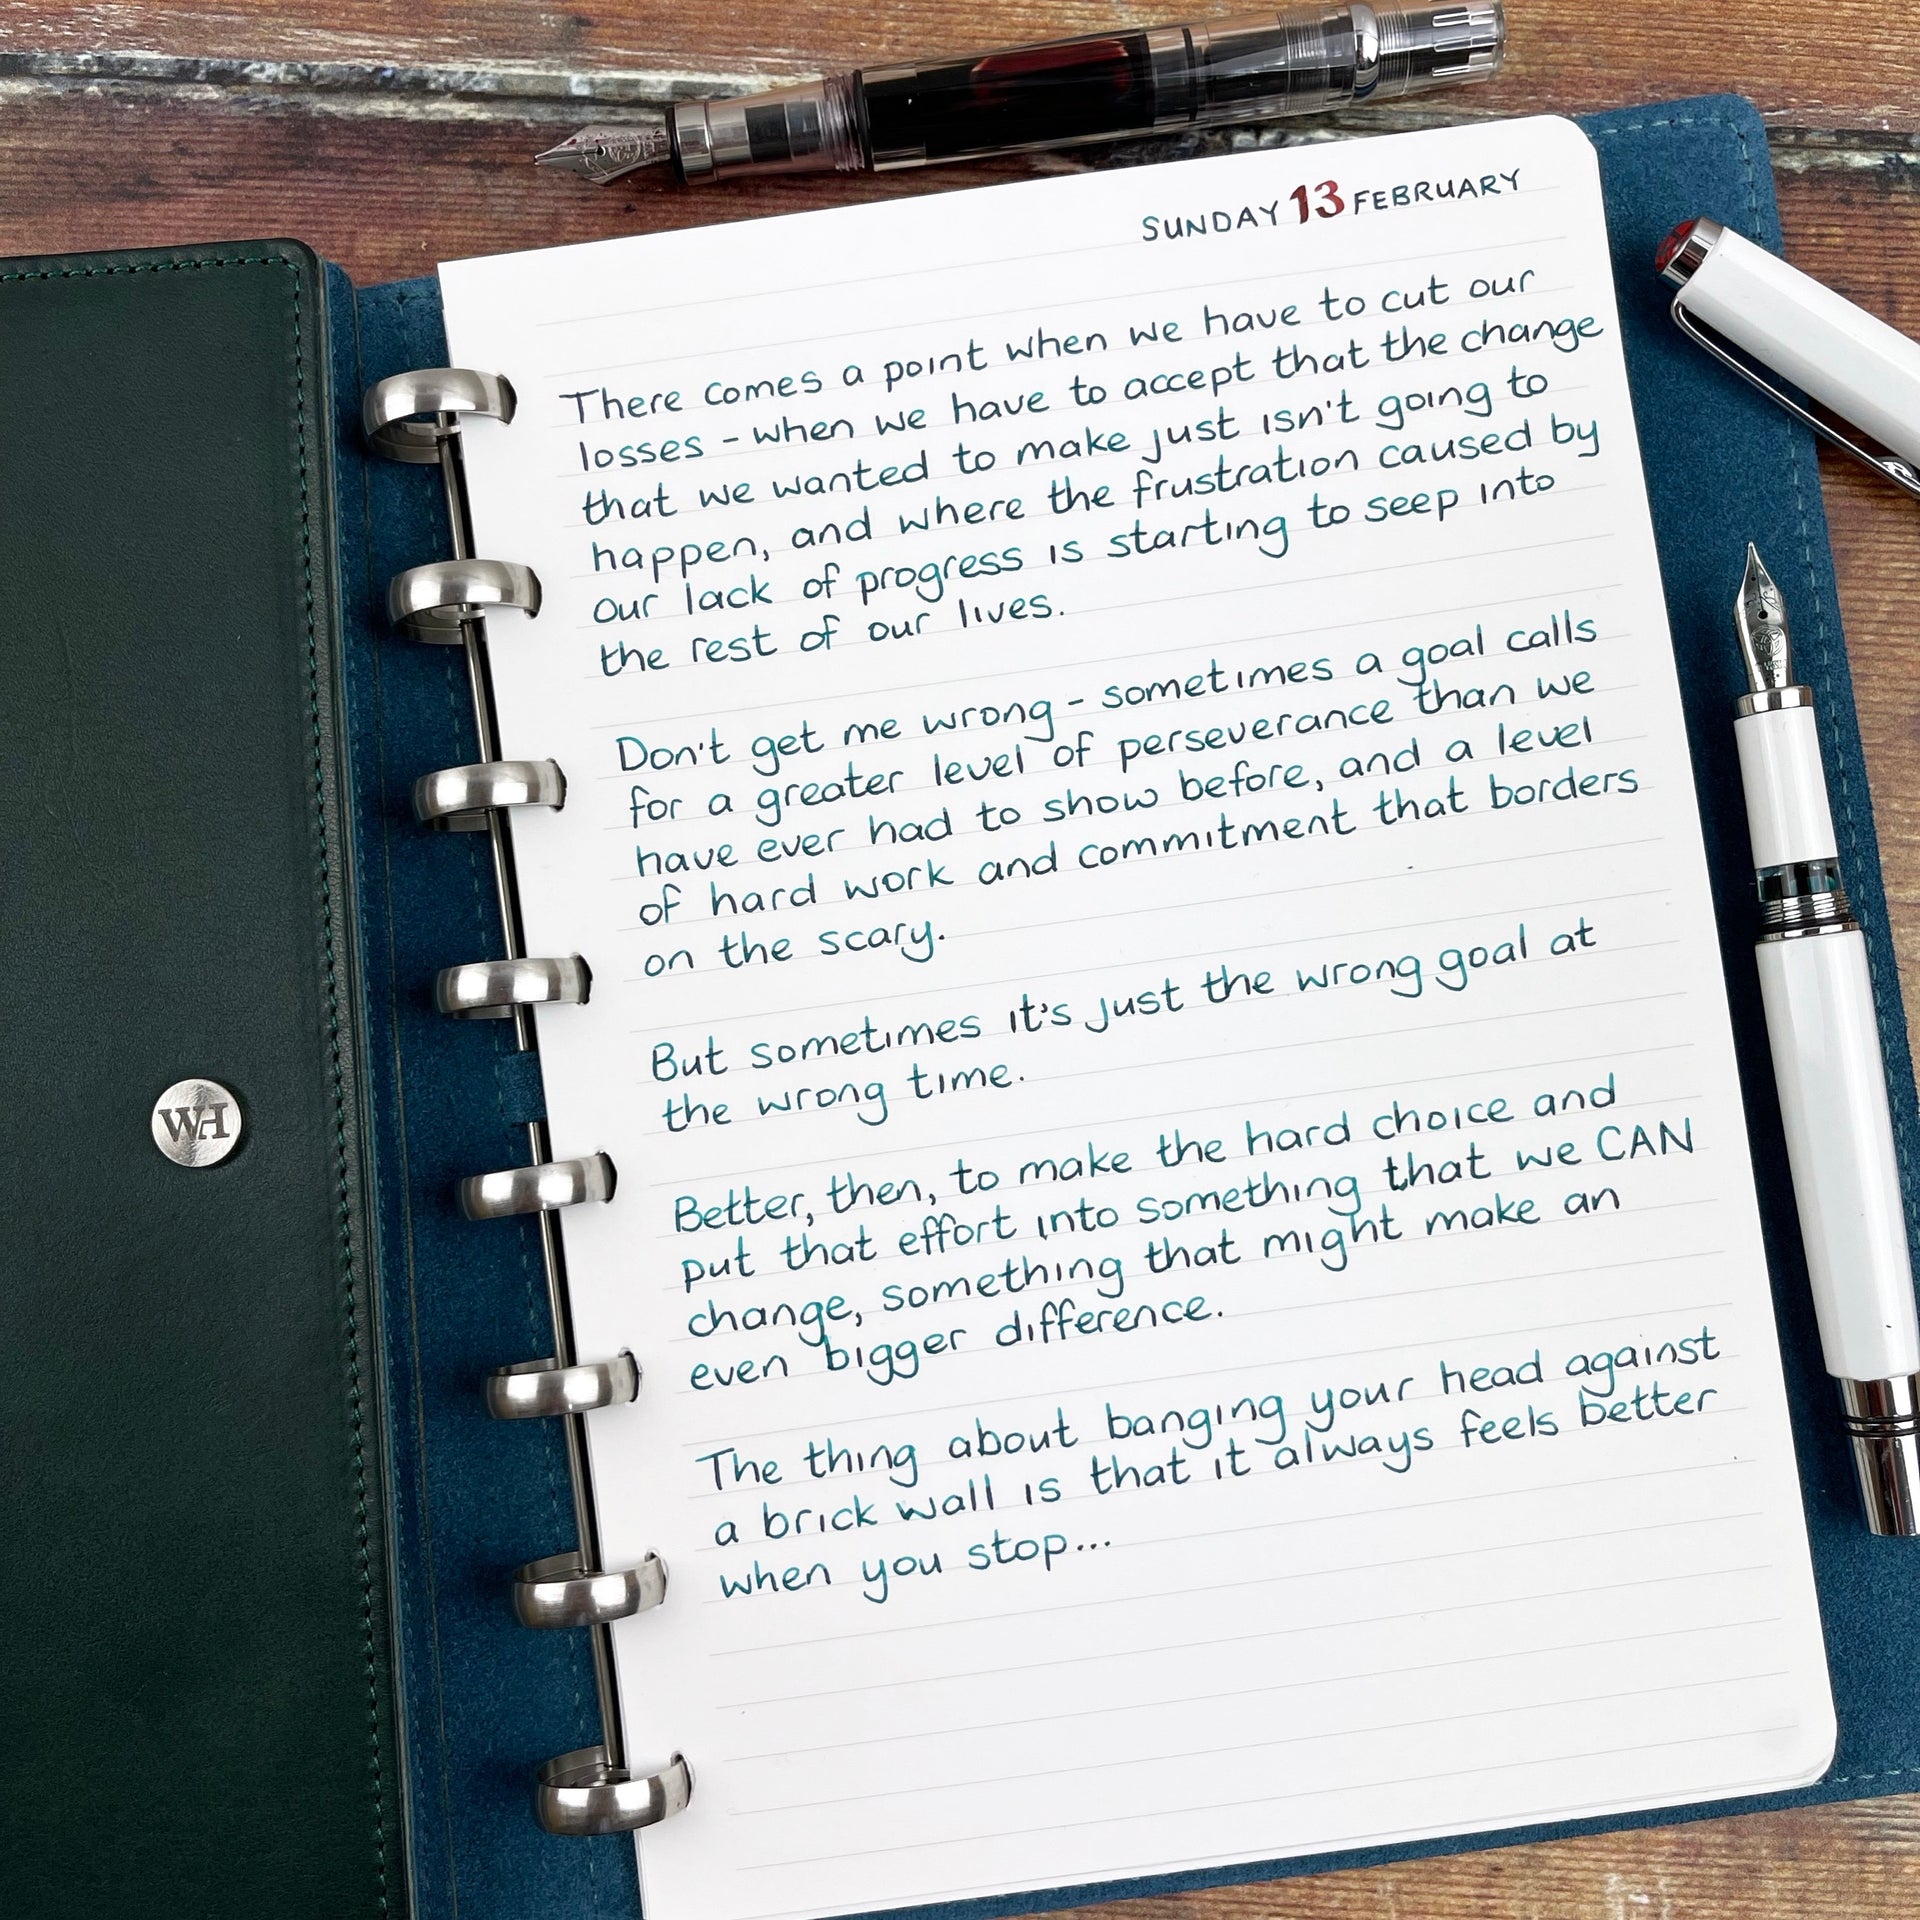 SUNDAY 13 FEBRUARY
There comes a point when we have to cut our
losses - when we have to accept that the change
that we wanted to make just isn't going to
happen, and where the frustration caused by
our lack of progress is starting to seep into
the rest of our lives.
Don't get me wrong - sometimes a goal calls
for a greater level of perseverance than we
have ever had to show before, and a level
of hard work and commitment that borders
on the scary.
But sometimes it's just the wrong goal at
the wrong time.
Better, then, to make the hard choice and
put that effort into something that we CAN
change, something that might make an
even bigger difference.
The thing about banging your head against
a brick wall is that it always feels better
when you stop...
WH